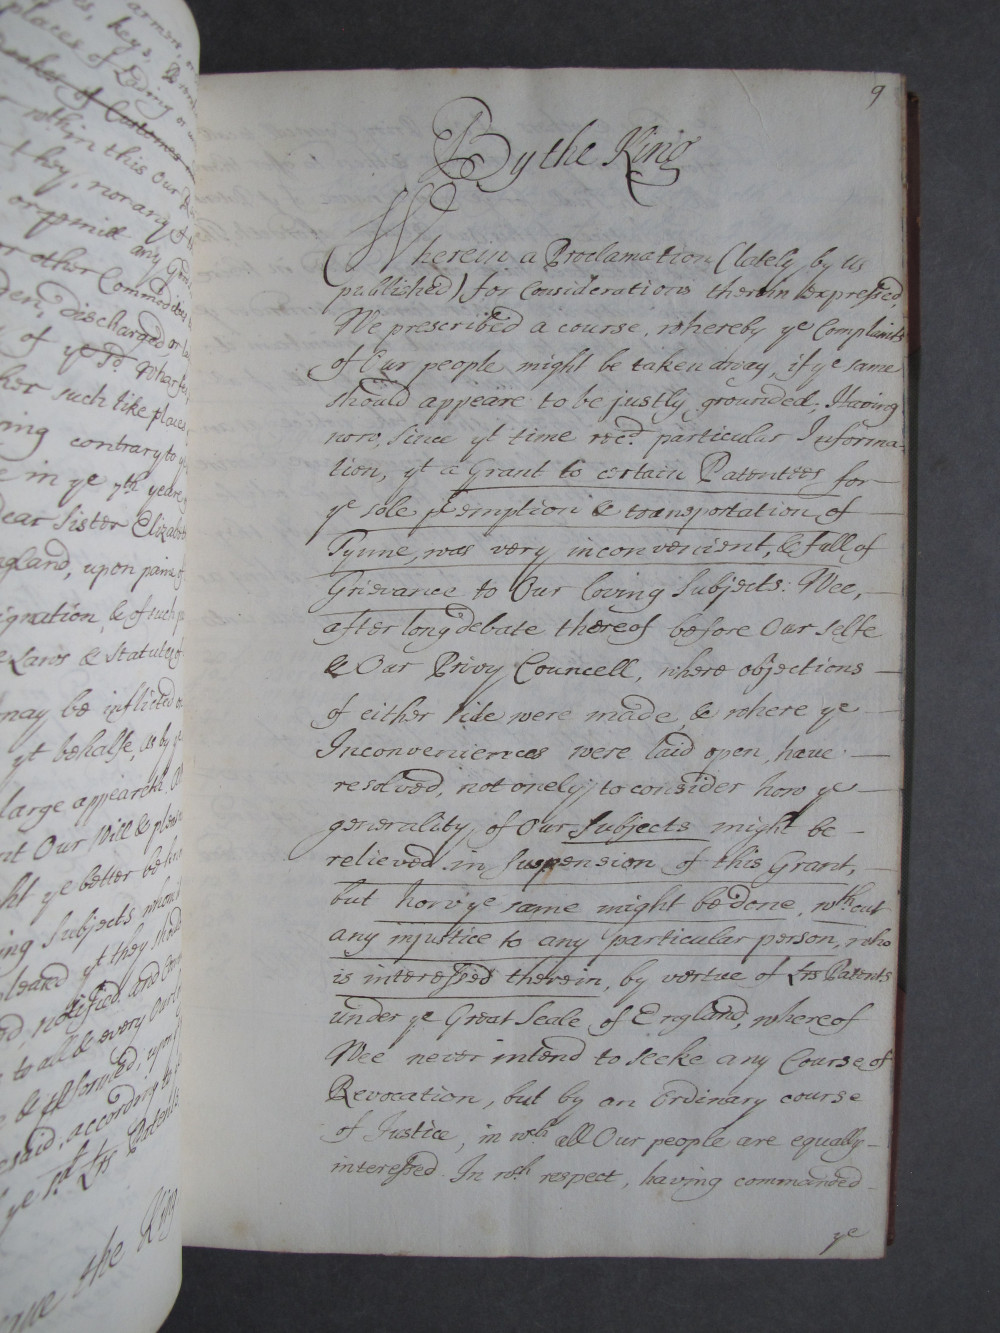 armon
keys, &
places of Lading or
of Customes
wthin this Our
they, nor any of
or permitt any
or other Commodities
den, discharged, or
of ye sd Wharfes
her such like places
ring contrary to ye
in ye 7th yeare
Dear Sister Elizabeth
ngland, upon paine of
ignation, & of such
Laws & Statutes of
may be inflicted
yt behalfe, as by ye
large appeareth. 
nt Our Will & pleas
ht ye better be
ing Subjects whom
yt they should
notified, and
to all & every Our
& pformed, upon
esaid, according to
ye sd Lrs Patents
the King
9
By the King
Wherein a Proclamation (lately by us
published) for Considerations therein expressed,
We prescribed a course, whereby ye Complaints
of Our people might be taken away, if ye same
should appeare to be justly grounded; Having
now, since yt time recd particular Informa-
tion, yt a Grant to certain Patentees for
ye sole pemption & transportation of
Tynne, was very inconvenient, & full of
Grievance to Our loving Subjects: Wee,
after long debate thereof before Our selfe
& Our Privy Councell, where objections
of either side were made, & where ye
Inconveniences were laid open, have
resolved, not onely, to consider how ye
generality, of Our Subjects might be
relieved in suspension of this Grant,
but how ye same might be done, wthout
any injustice to any particular person, who
is interessed therein, by vertue of Lrs Patents
under ye Great Seale of England, whereof
Wee never intend to seeke any Course of
Revocation, but by an ordinary course
of Justice, in wch all Our people are equally
interessed. In wch respect, having commanded
ye